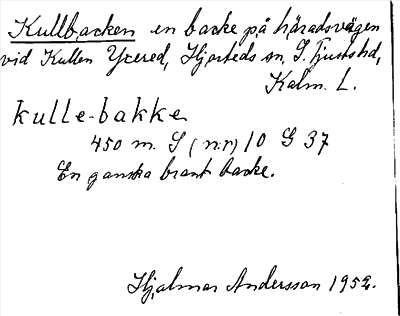 Kullbacken en backe på häradsvägen
vid Kullen Yxered, Hjorteds sn, S. Tjusts hd,
Kalm. L.
kulle-bakke
450 m. S (n:r) 10 G 37
En ganska brant backe.
Hjalmar Andersson 1952.